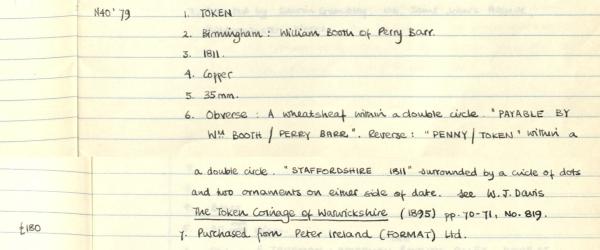 N40'79 1. TOKEN
2. Birmingham : William Booth of Perry Barr.
3. 1811.
4. Copper
5. 35mm.
6. Obverse : A wheatsheaf within a double circle. "PAYABLE BY
Wᴹ BOOTH / PERRY BARR". Reverse : "PENNY / TOKEN" within a
a double circle. "STAFFORDSHIRE 1811" surrounded by a circle of dots
and two ornaments on either side of date. See W.J. Davis
The Token Coinage of Warwickshire (1895) pp. 70-71, No. 819.
£180 7. Purchased from Peter Ireland (FORMAT) Ltd.